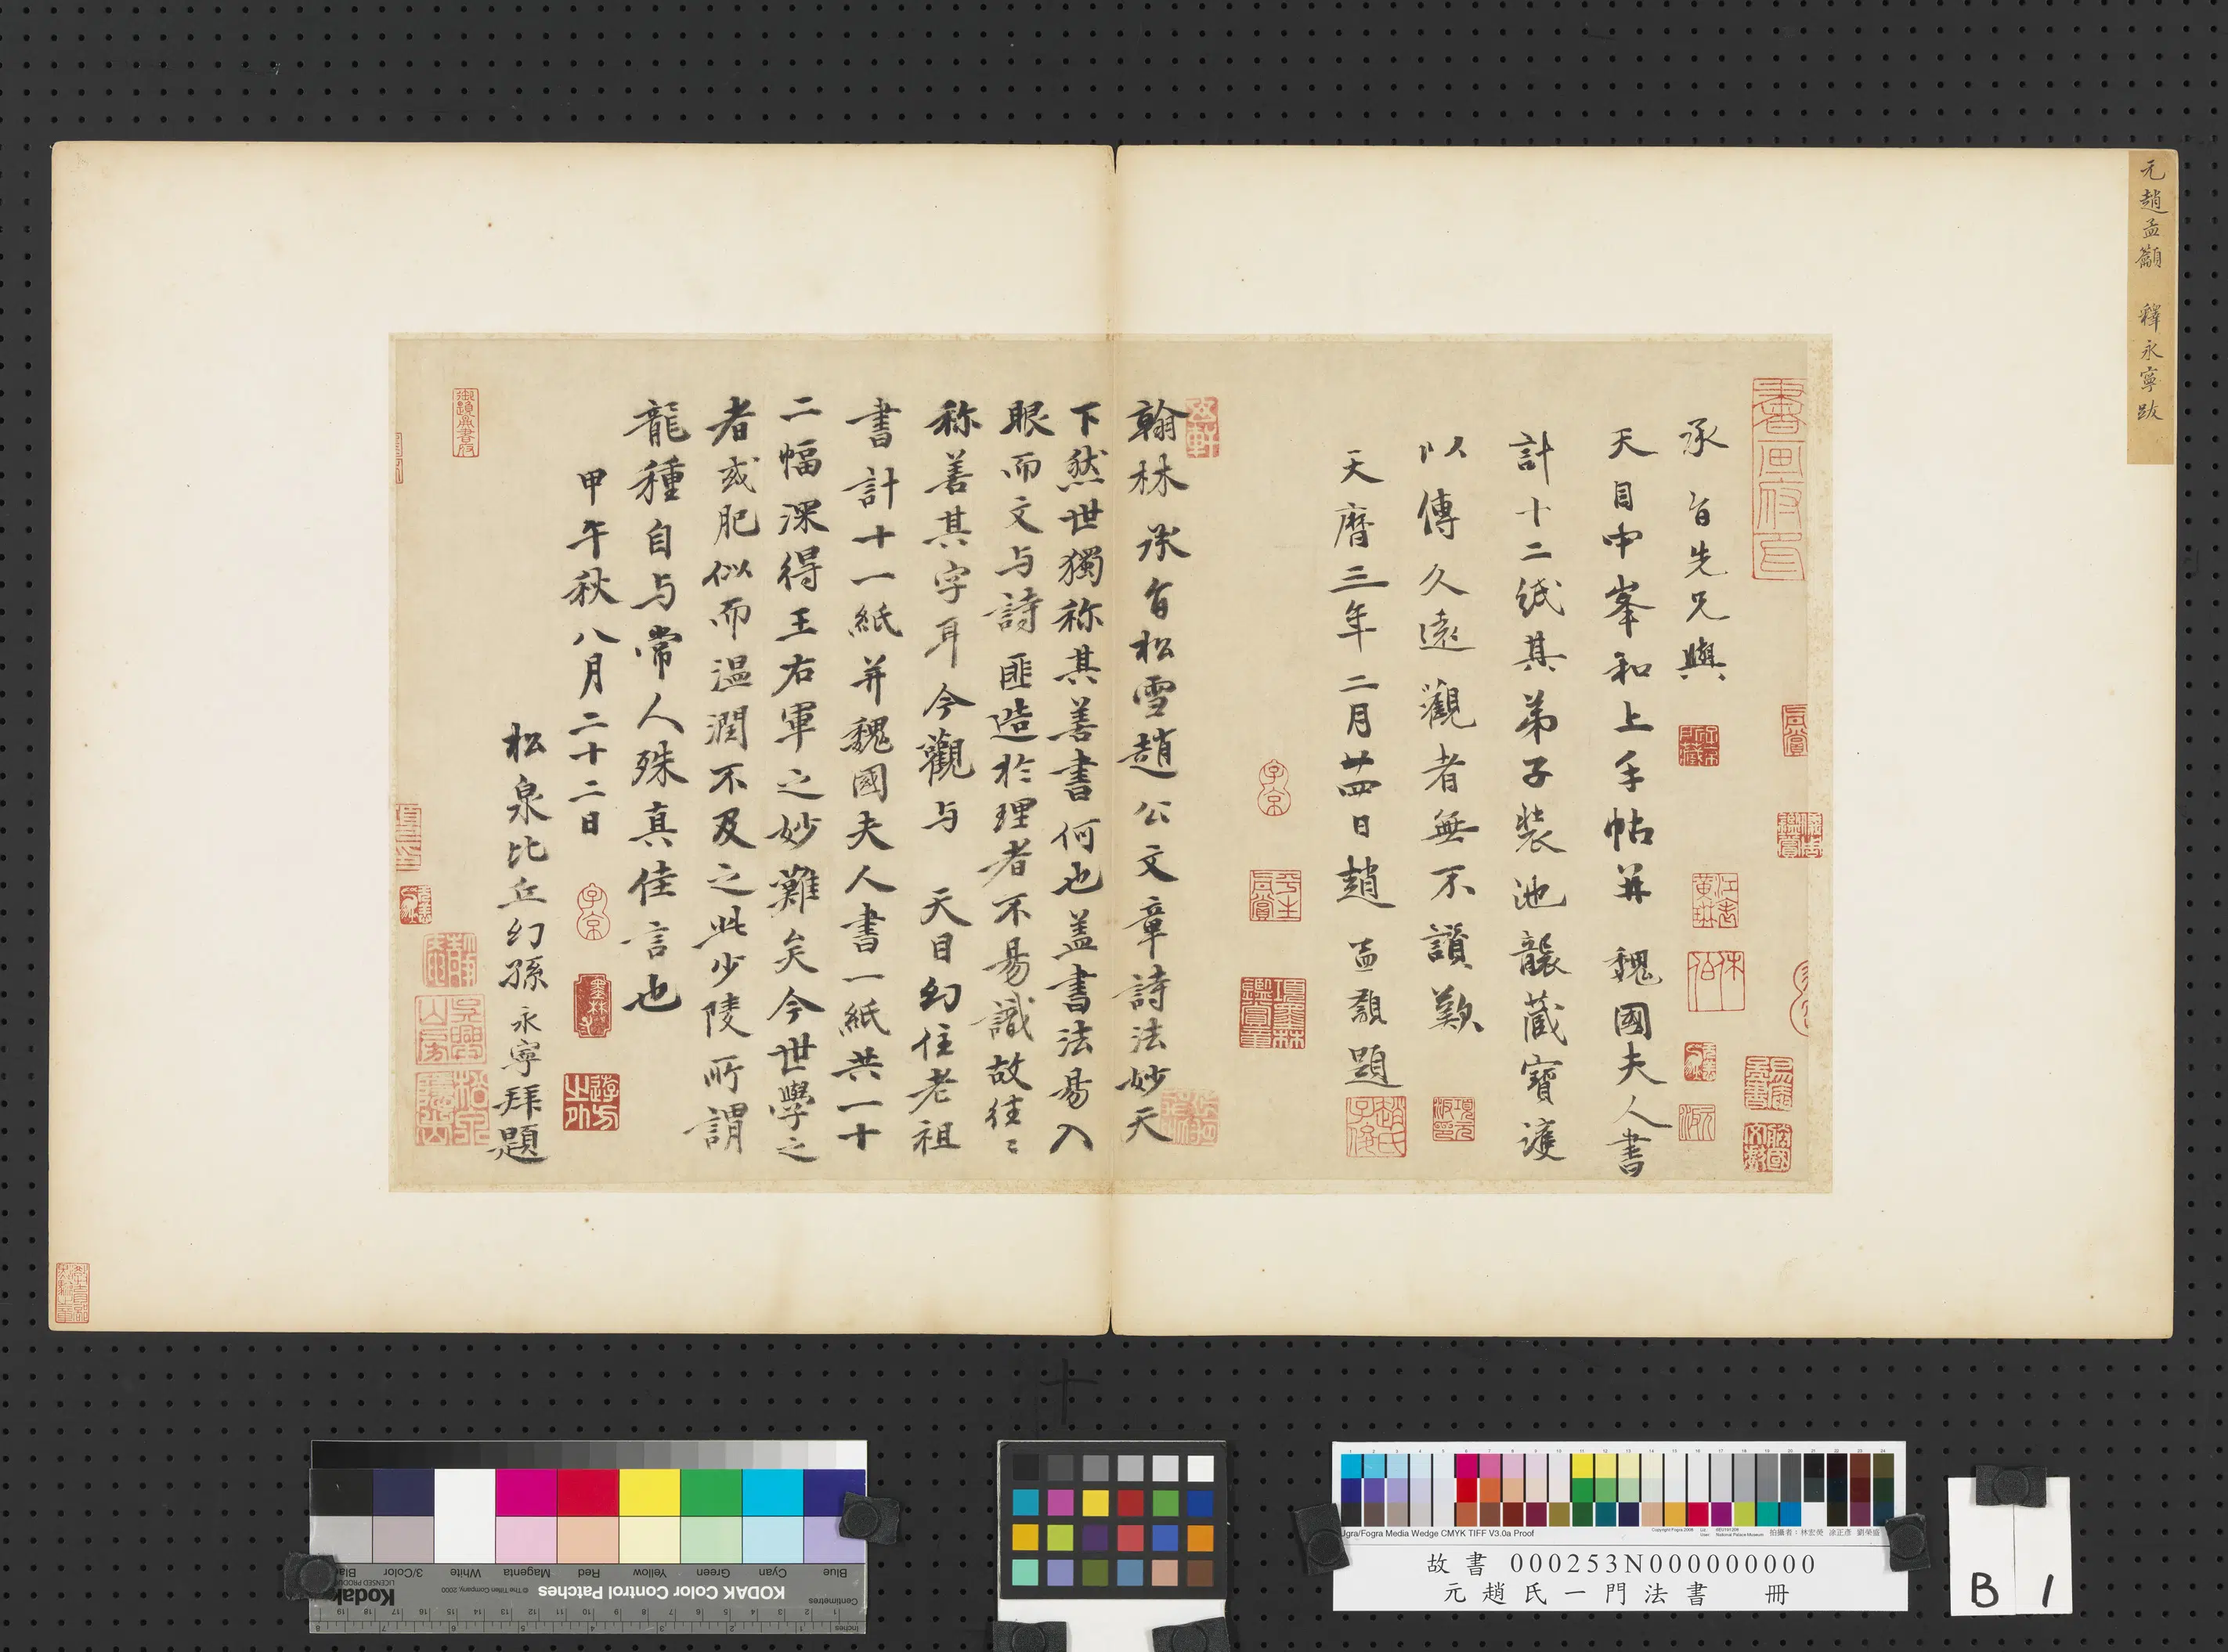 元趙孟籲 釋永寧跋
承旨先兄與
天目中峯和上手帖并魏國夫人書
計十二紙其弟子裝池襲藏寶護
以傳久遠觀者無不讚歎
天曆三年二月廿四日趙孟籲題
翰林承旨松雪趙公文章詩法妙天
下然世獨称其善書何也盖書法易入
眼而文与詩匪造於理者不易識故往〻
称善其字耳今觀与 天目幻住老祖
書計十一紙并魏國夫人書一紙共一十
二幅深得王右軍之妙難矣今世學之
者或肥似而溫潤不及之此少陵所謂
龍種自与常人殊真佳言也
甲午秋八月二十二日
松泉比丘幻孫永寧拜題
書画府印
趙氏子俊
項墨林鑑賞章
平生真賞
子京
子京
遊方之外
吳興山房
Kodak
LICENSED PRODUCT
KODAK Color Control Patches
© The Tiffen Company, 2000
Blue Cyan Green Yellow Red Magenta White 3/Color Black
Centimetres
Inches
Ugra/Fogra Media Wedge CMYK TIFF V3.0a Proof
故書 000253N000000000
元趙氏一門法書 冊
B 1